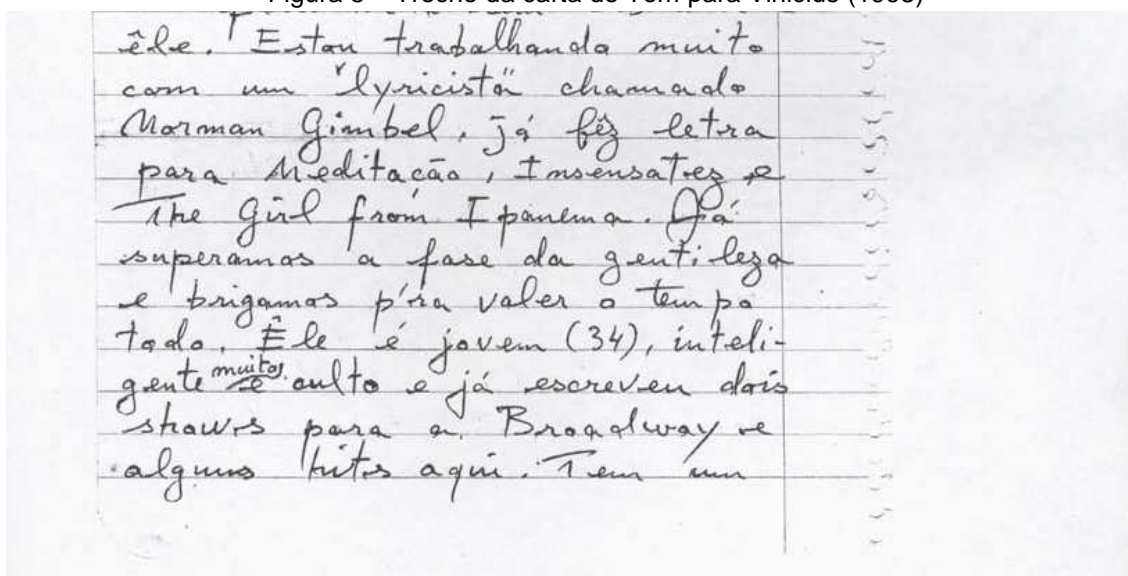 êle. Estou trabalhando muito
com um "lyricista" chamado
Norman Gimbel, já fêz letra
para Meditação, Insensatez e
The Girl from Ipanema. Já
superamos a fase da gentileza
e brigamos p'ra valer o tempo
todo. Êle é jovem (34), inteli-
gente muito culto e já escreveu dois
shows para a Broadway e
alguns hits aqui. Tem um